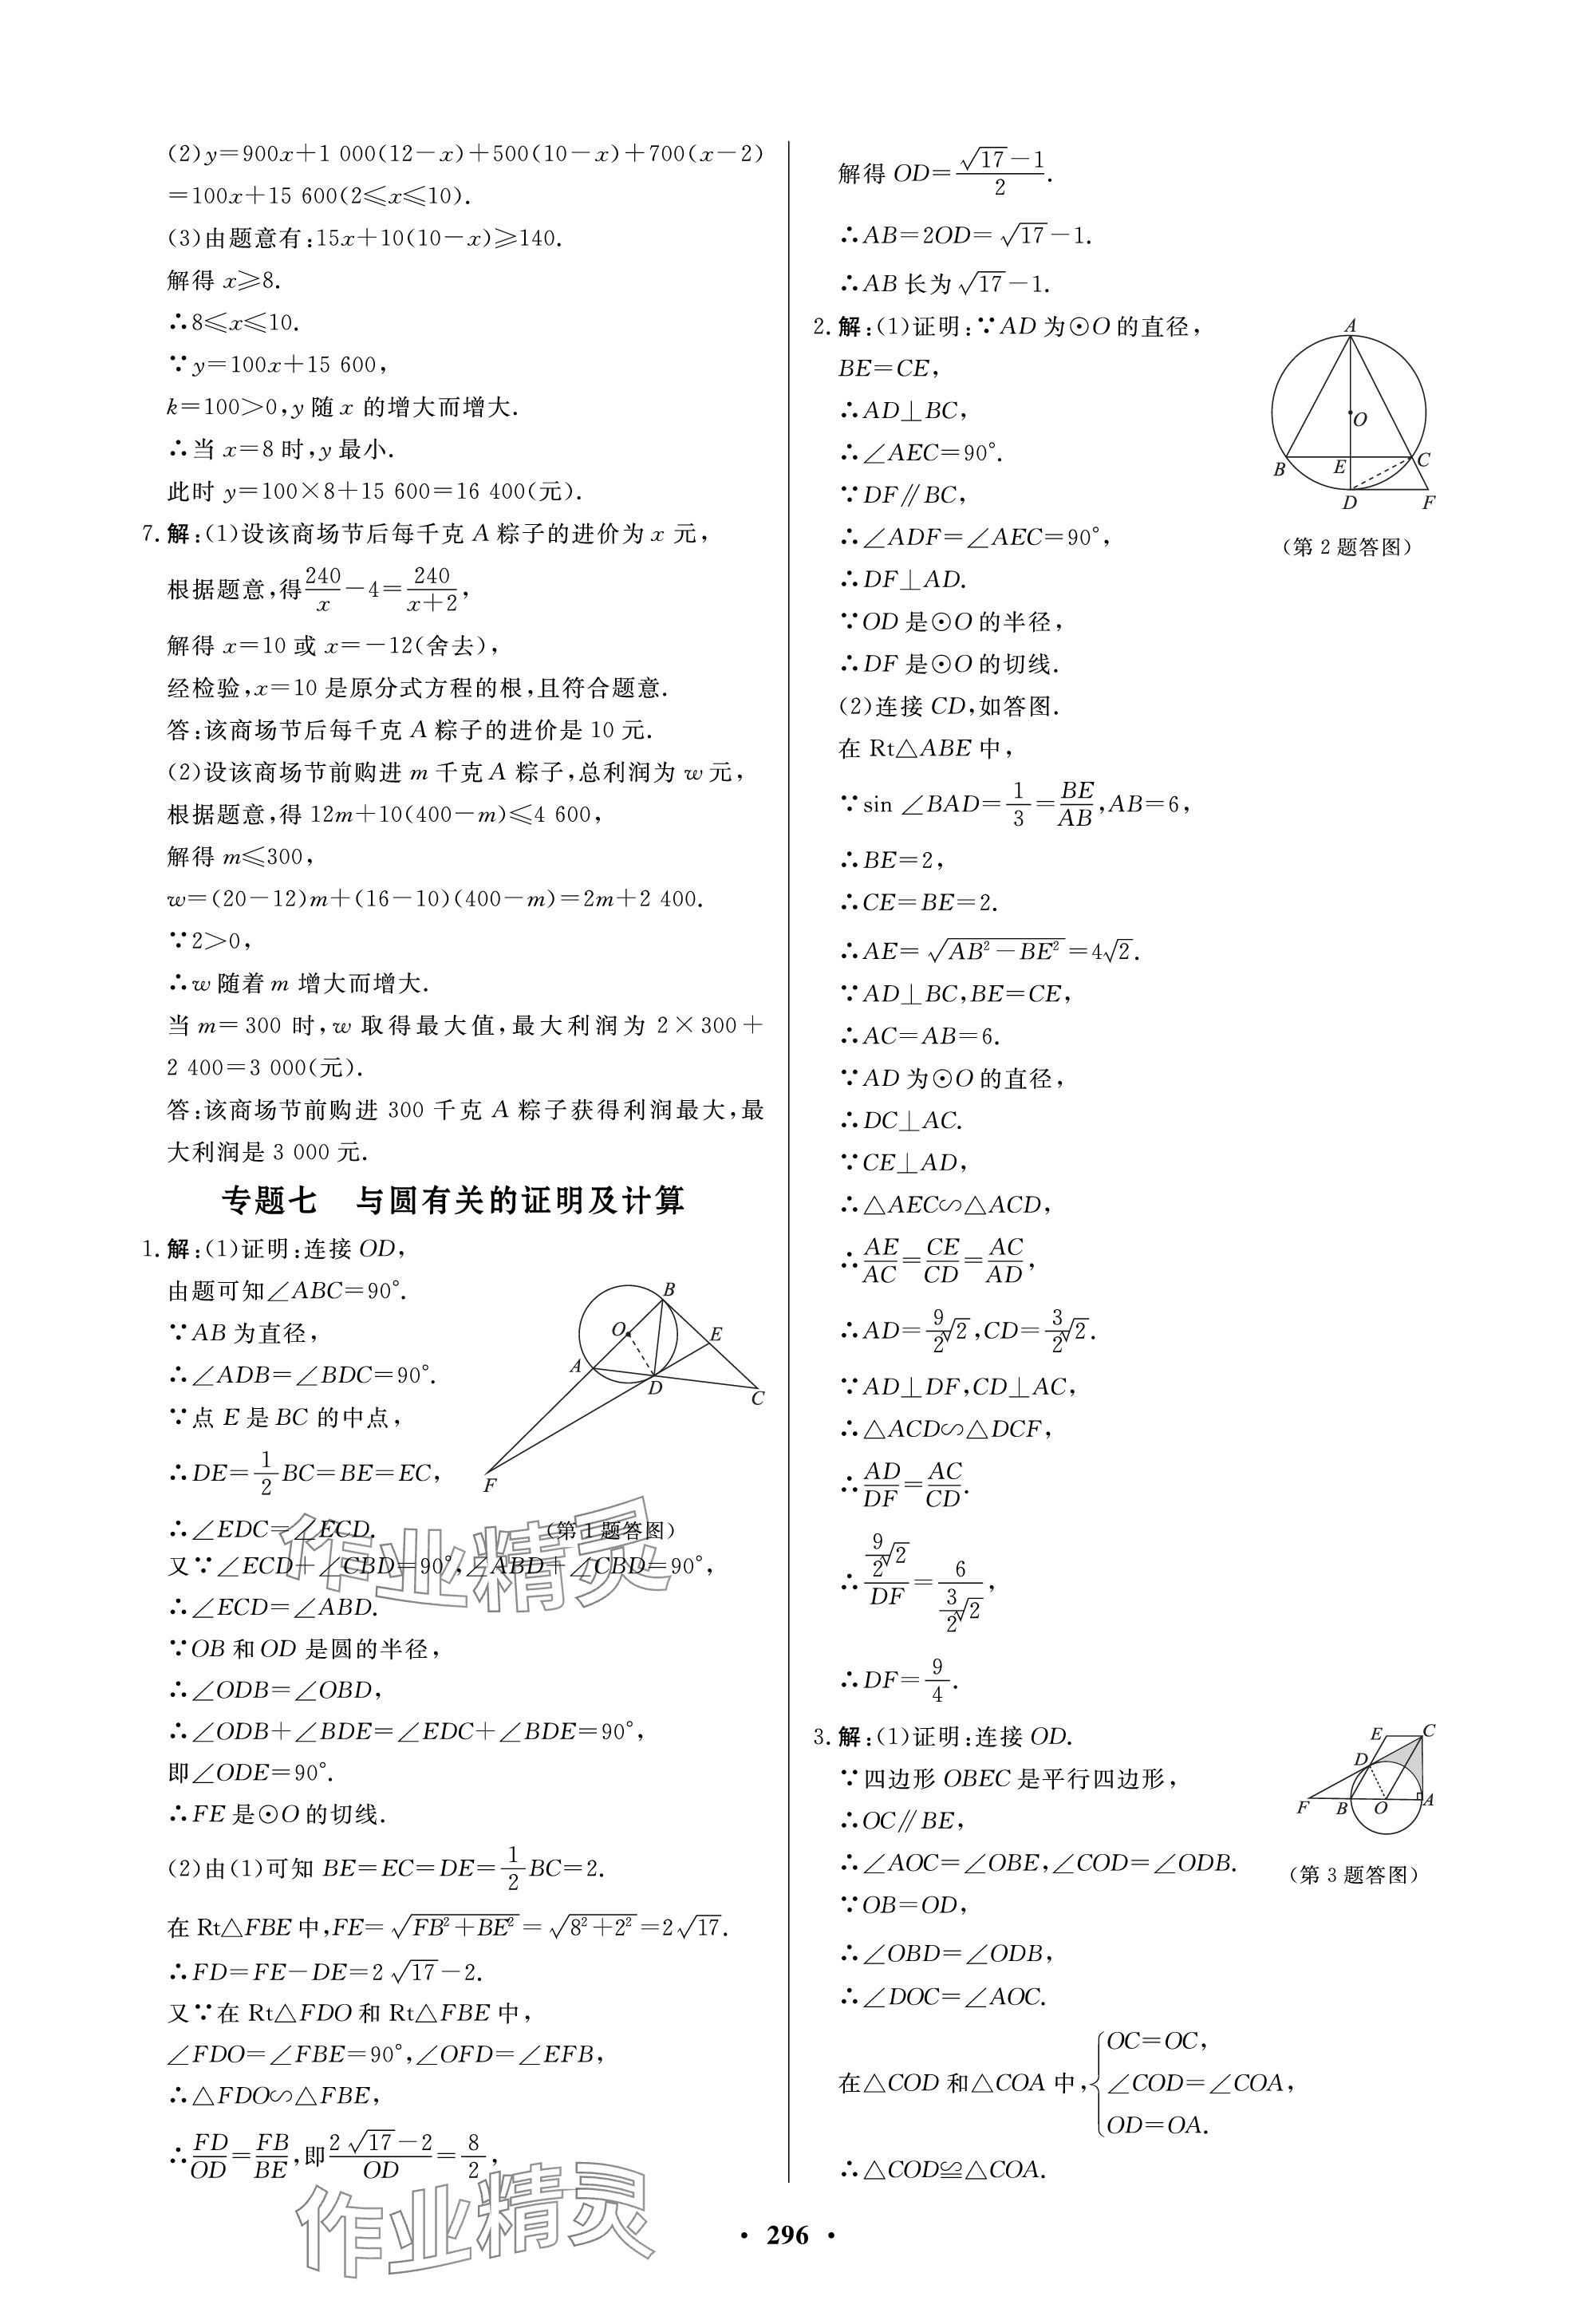 (2)y=900x+1 000(12-x)+500(10-x)+700(x-2)
=100x+15 600(2≤x≤10).
(3)由题意有:15x+10(10-x)≥140.
解得 x≥8.
∴8≤x≤10.
∵y=100x+15 600,
k=100>0,y随x的增大而增大.
∴当 x=8时,y最小.
此时 y=100×8+15 600=16 400(元).
7.解:(1)设该商场节后每千克A粽子的进价为x元,
根据题意,得240/x-4=240/(x+2),
解得 x=10 或 x=-12(舍去),
经检验,x=10 是原分式方程的根,且符合题意.
答:该商场节后每千克A粽子的进价是 10 元.
(2)设该商场节前购进m千克A粽子,总利润为w元,
根据题意,得 12m+10(400-m)≤4 600,
解得 m≤300,
w=(20-12)m+(16-10)(400-m)=2m+2 400.
∵2>0,
∴w随着m增大而增大.
当 m=300 时,w取得最大值,最大利润为 2×300+
2 400=3 000(元).
答:该商场节前购进 300 千克A粽子获得利润最大,最
大利润是 3 000 元.
专题七 与圆有关的证明及计算
1.解:(1)证明:连接 OD,
由题可知∠ABC=90°.
∵AB为直径,
∴∠ADB=∠BDC=90°.
∵点E是BC的中点,
∴DE=1/2BC=BE=EC,
∴∠EDC=∠ECD.
B
O
E
A
D
C
F
(第1题答图)
又∵∠ECD+∠CBD=90°,∠ABD+∠CBD=90°,
∴∠ECD=∠ABD.
∵OB和OD是圆的半径,
∴∠ODB=∠OBD,
∴∠ODB+∠BDE=∠EDC+∠BDE=90°,
即∠ODE=90°.
∴FE是⊙O的切线.
(2)由(1)可知 BE=EC=DE=1/2BC=2.
在Rt△FBE中,FE=√(FB²+BE²)=√(8²+2²)=2√17.
∴FD=FE-DE=2√17-2.
又∵在 Rt△FDO 和 Rt△FBE 中,
∠FDO=∠FBE=90°,∠OFD=∠EFB,
∴△FDO∽△FBE,
∴FD/OD=FB/BE,即(2√17-2)/OD=8/2,
解得 OD=(√17-1)/2.
∴AB=2OD=√17-1.
∴AB长为√17-1.
2.解:(1)证明:∵AD为⊙O的直径,
BE=CE,
∴AD⊥BC,
∴∠AEC=90°.
∵DF∥BC,
∴∠ADF=∠AEC=90°,
∴DF⊥AD.
∵OD是⊙O的半径,
∴DF是⊙O的切线.
A
O
B
E
C
D
F
(第2题答图)
(2)连接 CD,如答图.
在 Rt△ABE 中,
∵sin ∠BAD=1/3=BE/AB,AB=6,
∴BE=2,
∴CE=BE=2.
∴AE=√(AB²-BE²)=4√2.
∵AD⊥BC,BE=CE,
∴AC=AB=6.
∵AD为⊙O的直径,
∴DC⊥AC.
∵CE⊥AD,
∴△AEC∽△ACD,
∴AE/AC=CE/CD=AC/AD,
∴AD=9/2√2,CD=3/2√2.
∵AD⊥DF,CD⊥AC,
∴△ACD∽△DCF,
∴AD/DF=AC/CD.
∴(9/2√2)/DF=6/(3/2√2),
∴DF=9/4.
3.解:(1)证明:连接OD.
∵四边形 OBEC是平行四边形,
∴OC∥BE,
∴∠AOC=∠OBE,∠COD=∠ODB.
∵OB=OD,
∴∠OBD=∠ODB,
∴∠DOC=∠AOC.
E
C
D
F
B
O
A
(第3题答图)
在△COD 和△COA 中,{OC=OC,
∠COD=∠COA,
OD=OA.
∴△COD≌△COA.
作业精灵
作业精灵
· 296 ·